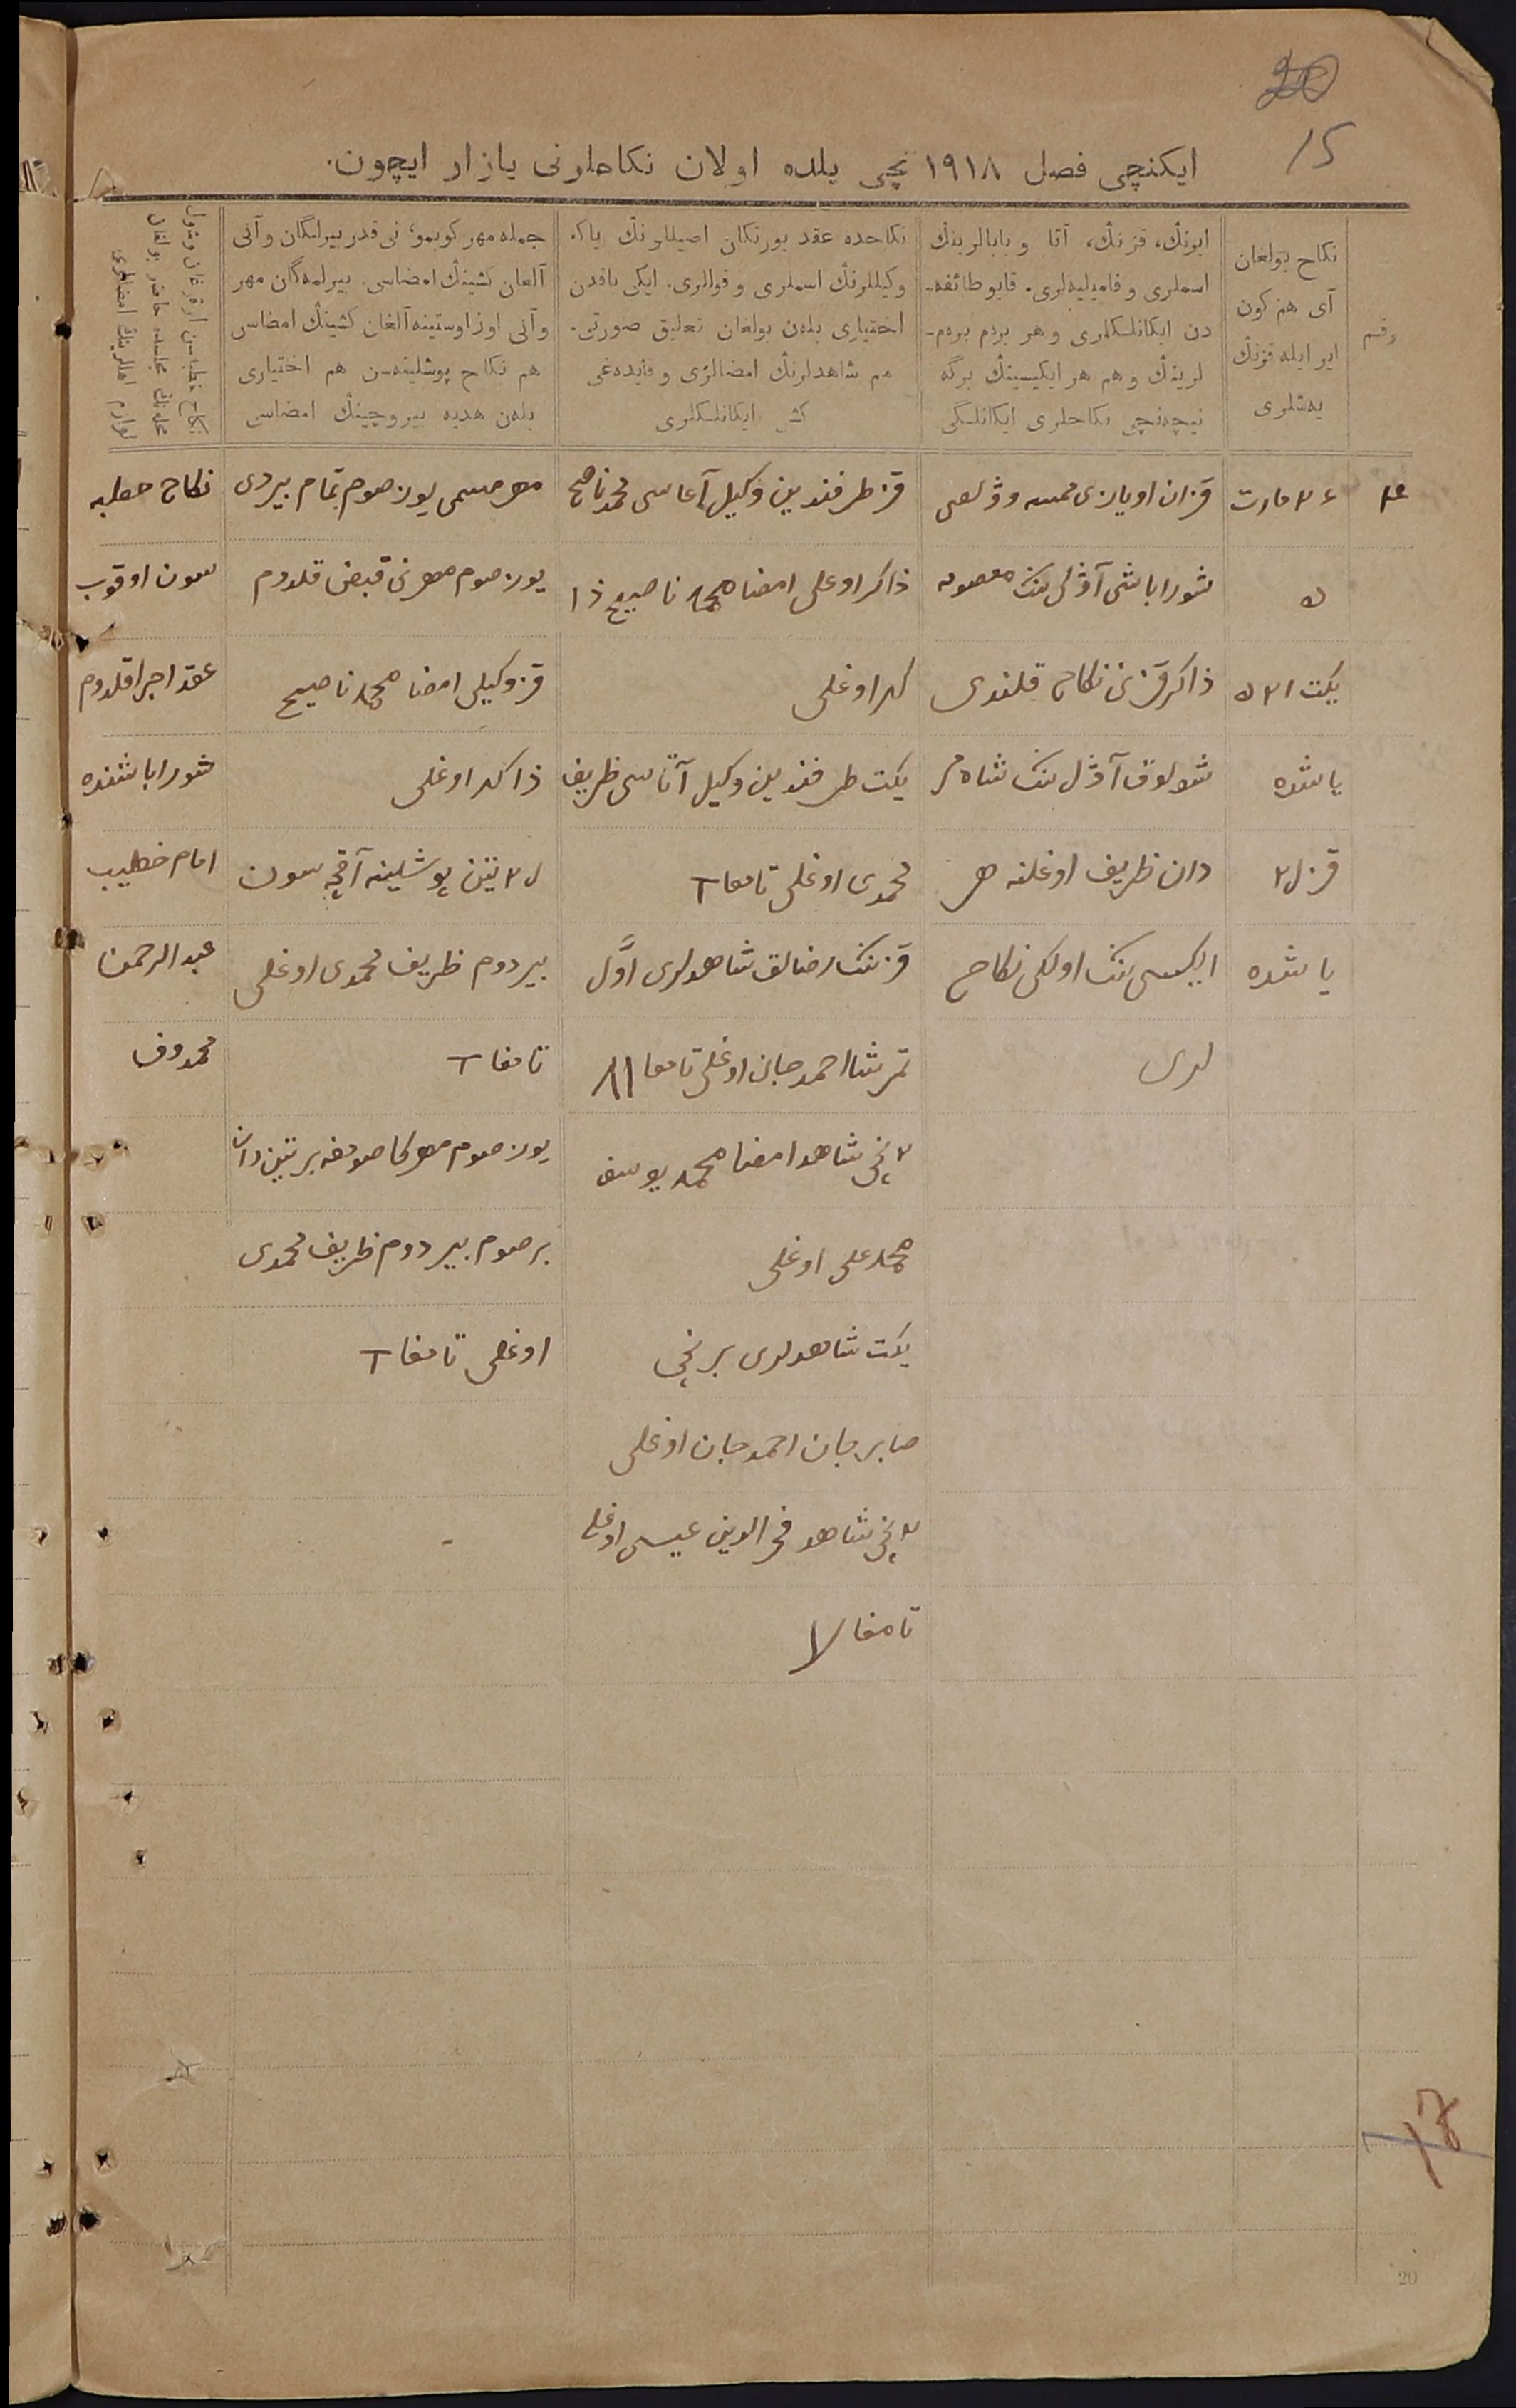 20
15
ایکنچی فصل ١٩١٨ نچی یلده اولان نکاحلرنی یازار ایچون.
رقم
نکاح بولغان
آی هم کون
ایر ایله قزنڭ
یەشلری
ایرنڭ، قزنڭ، آتا و بابالرینڭ
اسملری و فامیلیەلری. قایو طائفه-
دن ایکانلکلری و هر بردم بردم-
لرینڭ و هم هر ایکیسینڭ برگه
نیچەنچی نکاحلری ایکانلگی
نکاحده عقد یورتکان اصیللرنڭ یاکه
وکیللرنڭ اسملری و قوللری. ایکی یاقدن
اختیاری بلەن بولغان تعلیق صورتی.
هم شاهدلرنڭ امضالری و قایدەغی
کشی ایکانلکلری
جمله مهر کوبمو؛ نی قدر بیرلگان و آنی
آلغان کشینڭ امضاسی. بیرلمەگان مهر
و آنی اوز اوستینه آلغان کشینڭ امضاسی
هم نکاح پوشلینەسن هم اختیاری
بلەن هدیه بیروچینڭ امضاسی
نکاح خطبەسن اوقوغان و شول
محلەنڭ مجلسده حاضر بولغان
امضالری
٢٦ مارت
قزان اویازی وولصی
قز طرفندین وکیل آغاسی محمد ناصح
مهر مسمی یوز صوم تمام بیردی
نکاح خطبه
شورا باشی آولی ننک معصومه
ذاکر اوغلی امضا محمد ناصیح ذا
یوز صوم مهرنی قبض قلدوم
سون اوقوب
یکت ٢١
ذاکر قزنی نکاح قلندی
کر اوغلی
قز وکیلی امضا محمد ناصیح
عقد اجرا قلدوم
یاشده
شولوق آول ننک شاه مر
یکت طرفندین وکیل آتاسی ظریف
ذاکر اوغلی
شورا باشنده
قز ٢٠
دان ظریف اوغلنه هر
محمدی اوغلی تامغا T
٢٠ تین پوشلینه آقچه سون
امام خطیب
یاشده
ایکیسی ننک اولکی نکاح
قزننک رضالق شاهدلری اوّل
بیردوم ظریف محمدی اوغلی
عبدالرحمن
لری
تمرشا احمدجان اوغلی تامغا
تامغا T
محمدوف
٢ نچی شاهد امضا محمد یوسف
محمد علی اوغلی
بر صوم بیردوم ظریف محمدی
یکت شاهدلری برنچی
اوغلی تامغا T
صابرجان احمدجان اوغلی
٢ نچی شاهد فخرالدین عیسی اوغلی
تامغا
17
20